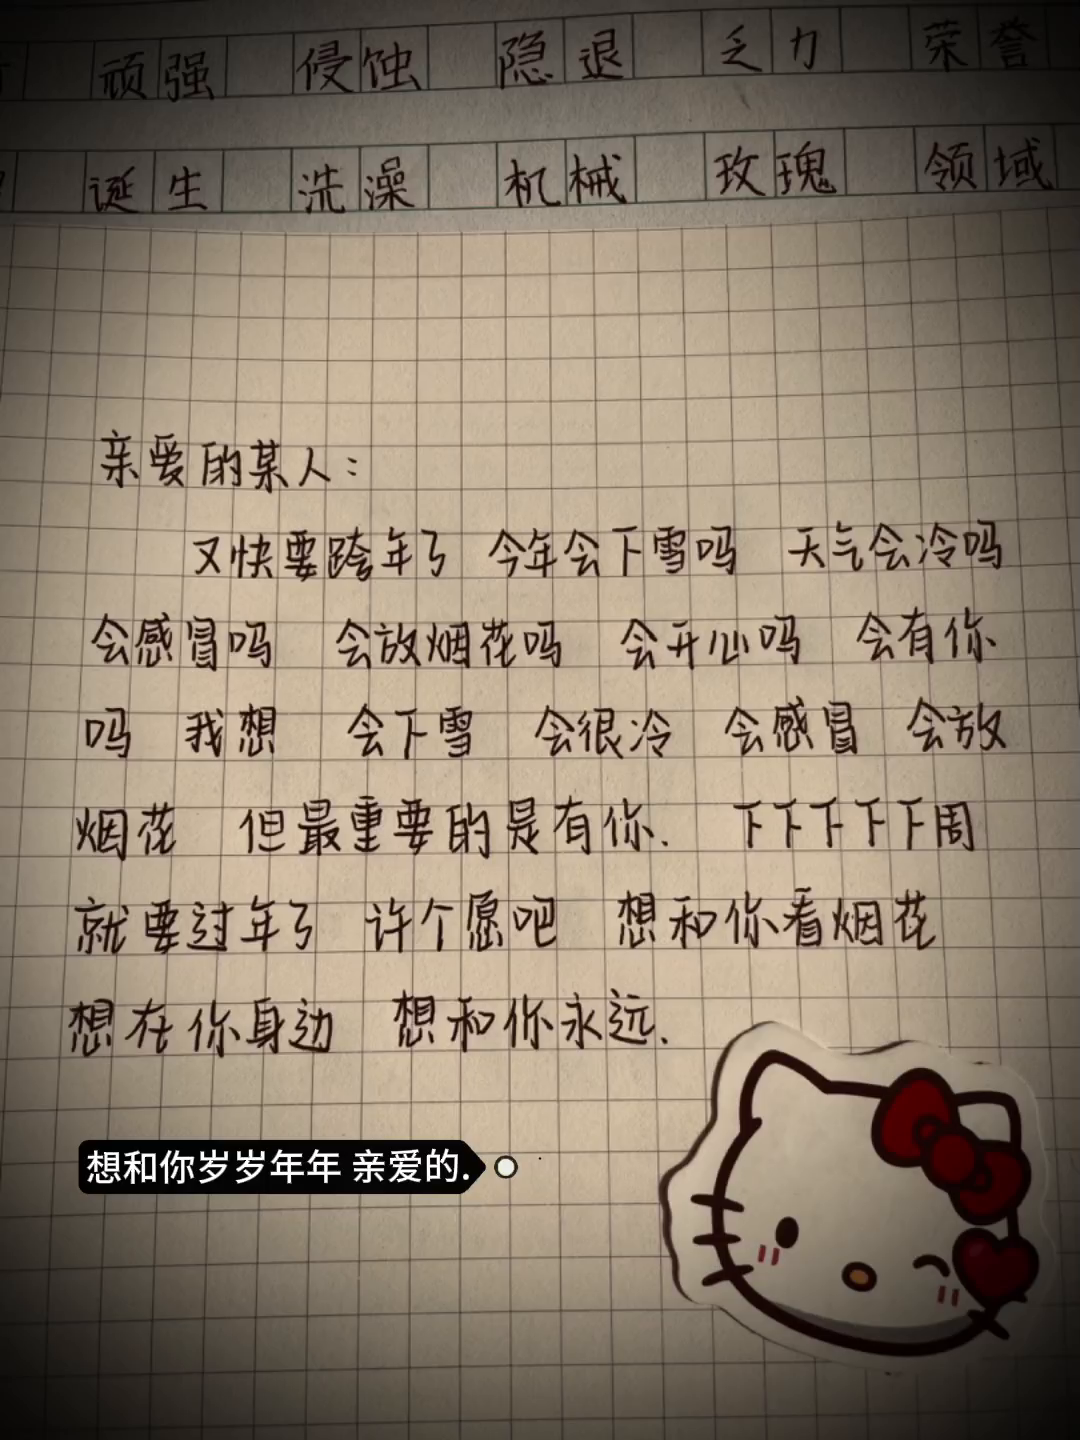 顽强 侵蚀 隐退 乏力 荣誉
诞生 洗澡 机械 玫瑰 领域
亲爱的某人:
又快要跨年了 今年会下雪吗 天气会冷吗
会感冒吗 会放烟花吗 会开心吗 会有你
吗 我想 会下雪 会很冷 会感冒 会放
烟花 但最重要的是有你. 下下下下下周
就要过年了 许个愿吧 想和你看烟花
想在你身边 想和你永远.
想和你岁岁年年 亲爱的.